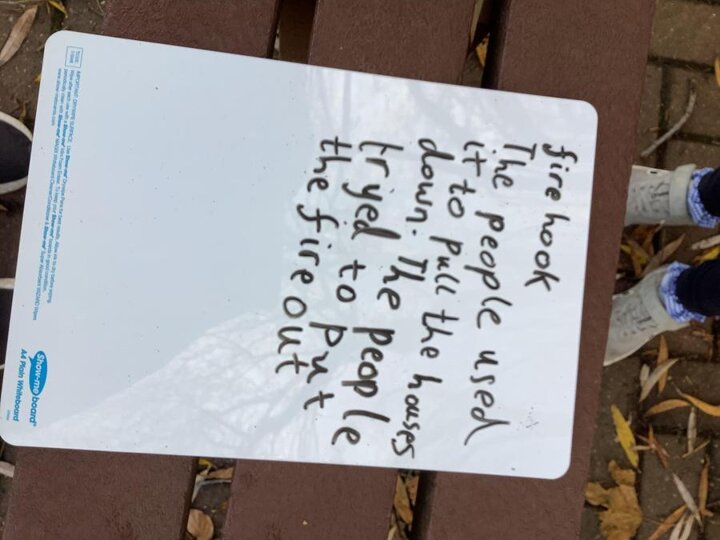 fire hook
The people used
it to pull the houses
down. The people
tryed to put
the fire out
Show-me board
A4 Plain Whiteboard